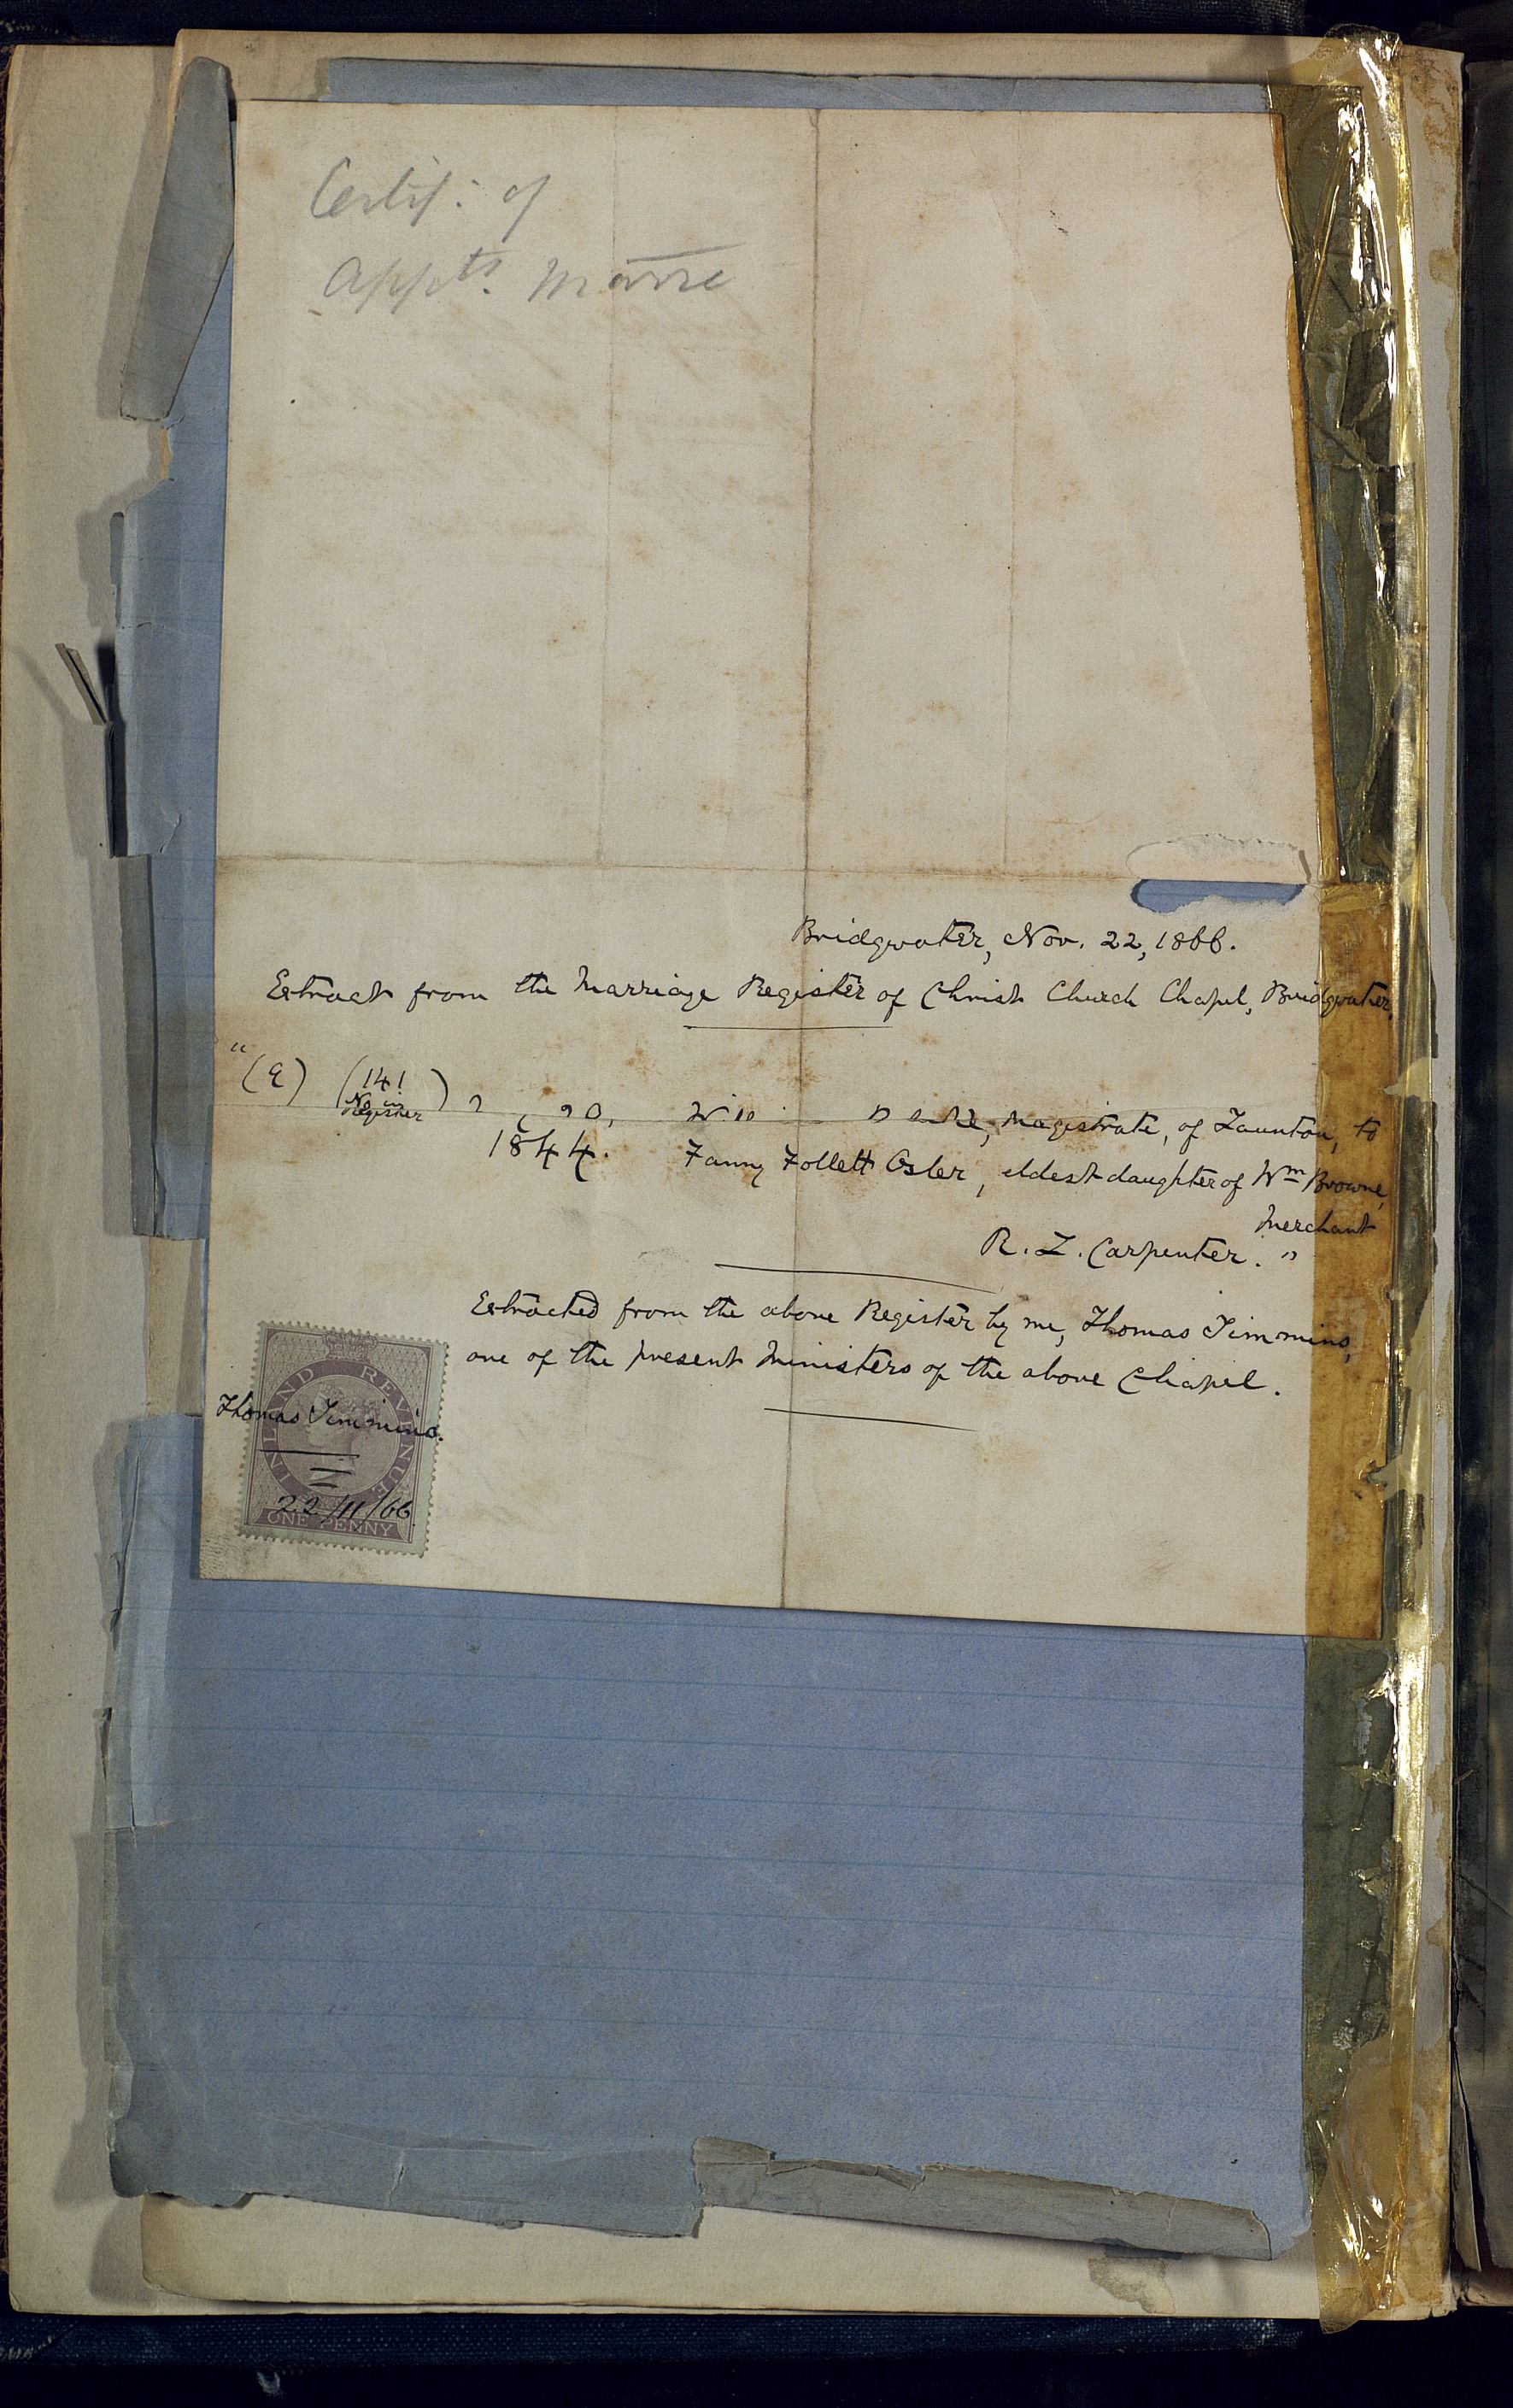 Certif: of
Appts. Marre
Bridgwater, Nov. 22, 1866.
Extract from the Marriage Register of Christ Church Chapel, Bridgwater,
"(9) (141
No in
Register)
magistrate, of Taunton, to
1844. Fanny Follett Osler, eldest daughter of Wm Browne,
Merchant
R. L. Carpenter. "
Extracted from the above Register by me, Thomas Timmins,
one of the present Ministers of the above Chapel.
INLAND REVENUE
Thomas Timmins.
22/11/66
ONE PENNY